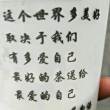 这个世界多美好
取决于我们
有多爱自己
最好的茶送给
最爱的自己